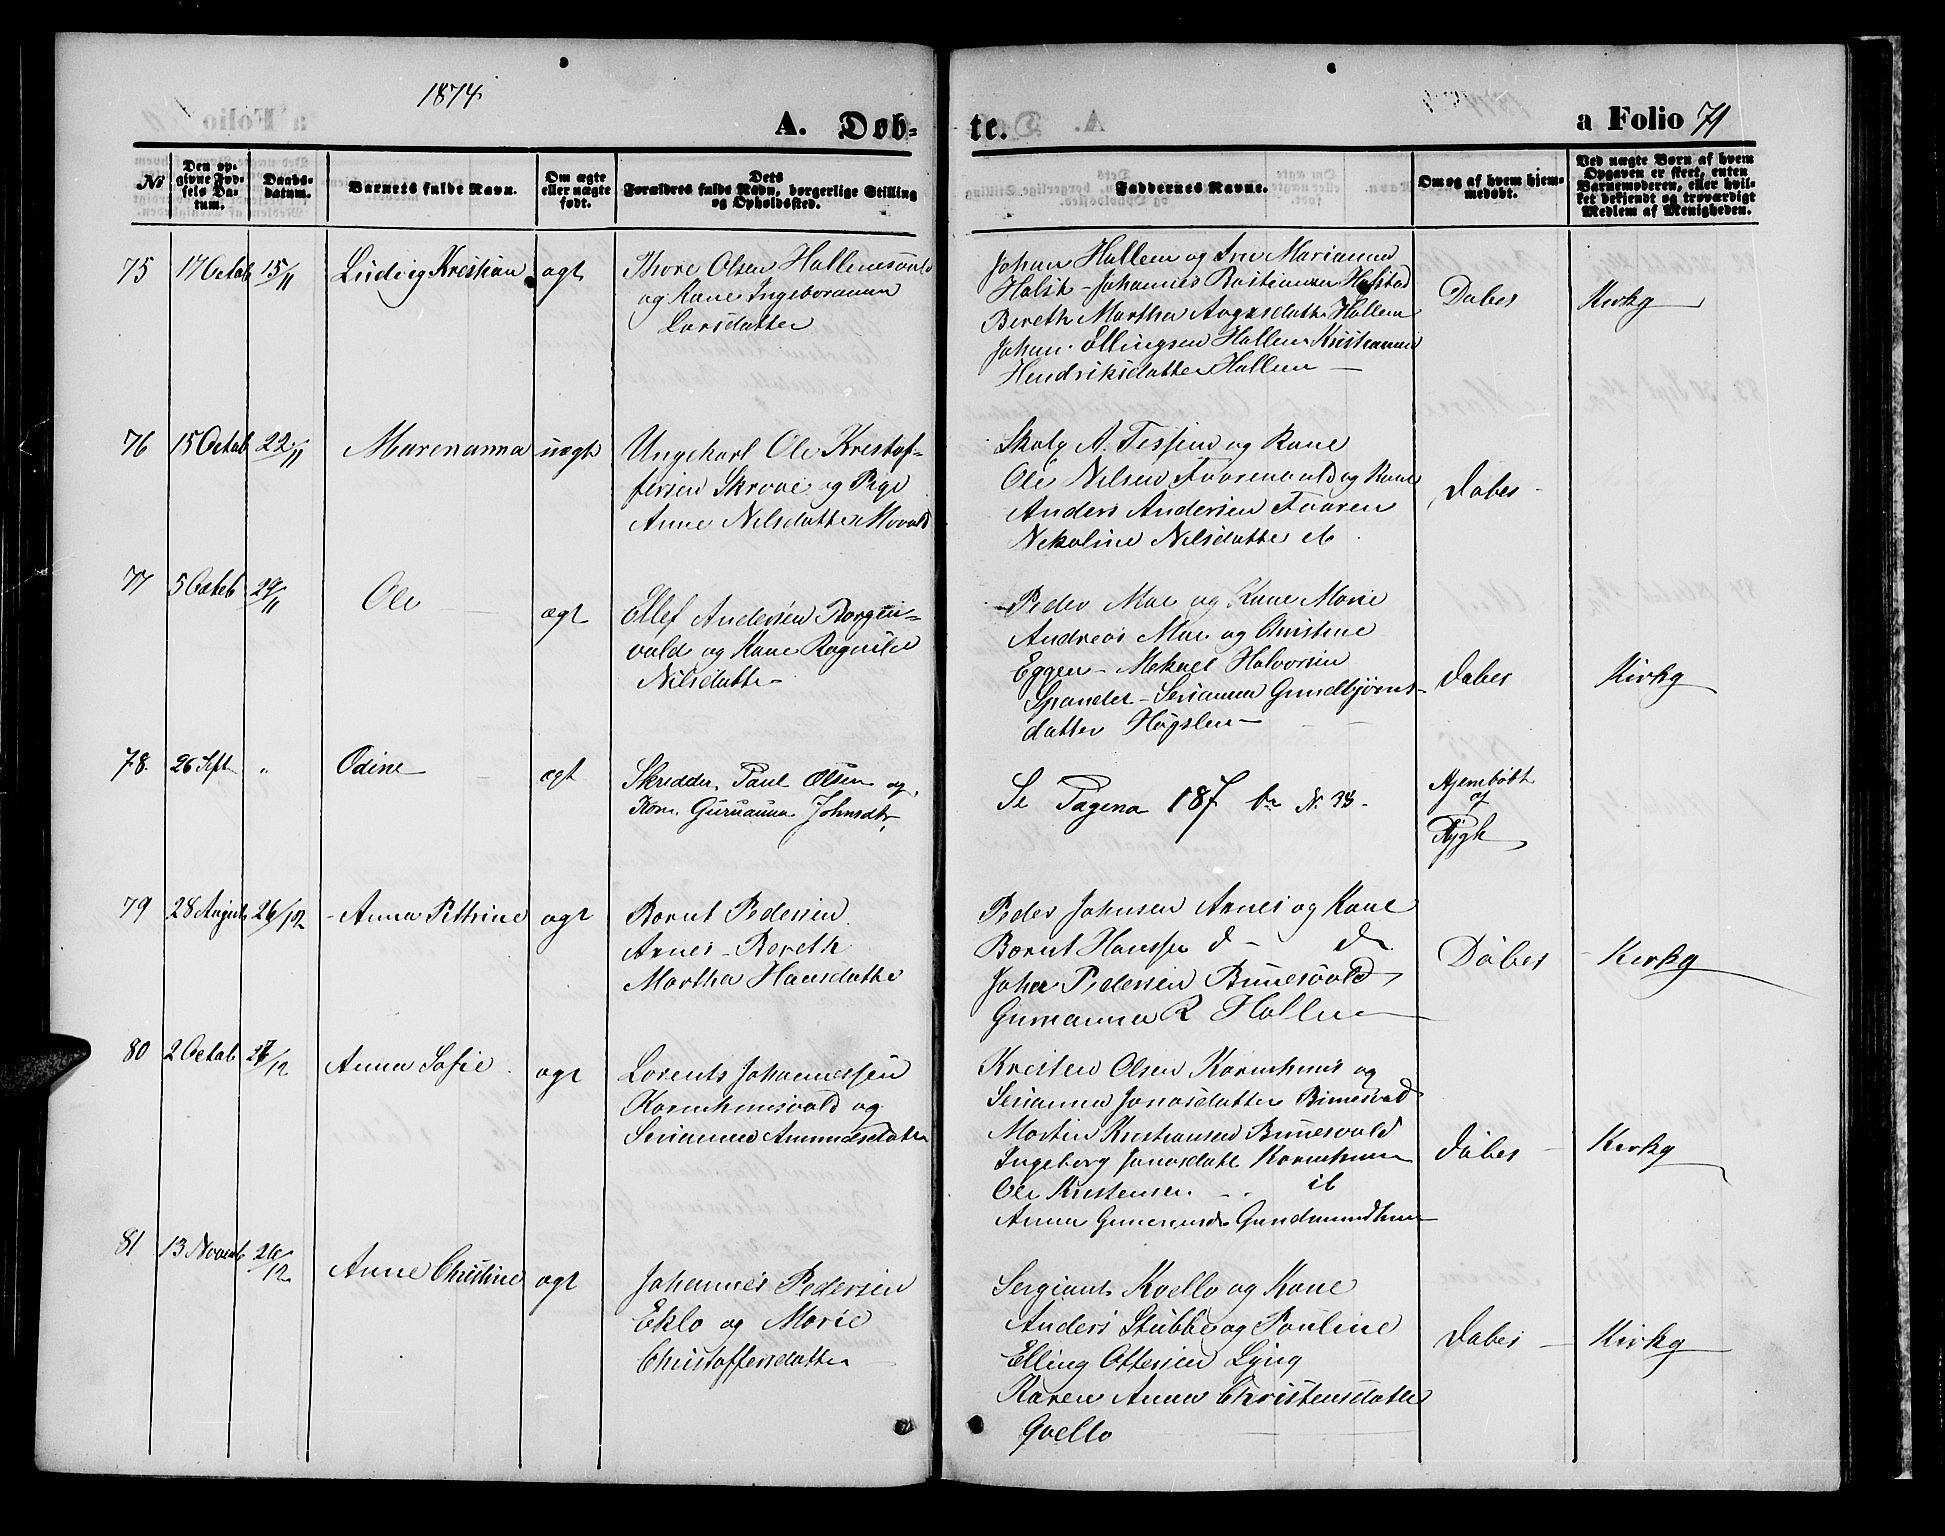 1874
A. Døb-
te.
a Folio 79
No
Den op-
givne Fød-
sels Da-
tum.
Daabs-
datum.
Barnets fulde Navn.
Om ægte
eller uægte
født.
Dets
Forældres fulde Navn, borgerlige Stilling
og Opholdssted.
Faddernes Navne.
Om og af hvem hjem-
medøbt.
Ved uægte Børn af hvem
Opgaven er skeet, enten
Barnemoderen, eller hvil-
ket bekjendt og troværdigt
Medlem af Menigheden.
75 17 Octob 15/11 Ludvig Kristian ægt
Thore Olsen Hallemsvald
og Kane Ingeboranna
Larsdatter
Johan Hallem og Marianna
Johannes Bastiansen Hofstad
Bereth Martha Hallem
Johan Ellingsen Hallem Kristianna
Hendriksdatter Hallem
Døbes
Kirkg
76 15 Octob 22/11 Marenanna uægt
Ungekarl Ole Kristof-
fersen Skrove og Pige
Anne Nilsdatter Movold
og Kane
Ole Nilsen og Kane
Anders Andersen Faaren
Nekoline Nilsdatter
Døbes
77 5 Octob 29/11 Ole ægt
Ellef Andersen Borgen-
vald og Kane Ragnild
Nilsdatter
Peder Moe og Kane Marie
Andreas Moe og Christine
Eggen - Mekael Halvorsen
Spandet - Serianna Gundbjørns-
datter
Døbes
Kirkg
78. 26 Sept. " Odine ægt
Skredder Paul Olsen og
Kone Guruanna Johnsdtr
Se Pagina 187 N. 34
Hjemdøbt
af
Rygh
79 28 August 26/12 Anna Pettrine ægt
Bernt Pedersen
Aanes - Bereth
Martha Hansdatter
Peder Johnsen Aanes og Kane
Bernt Hanssen d - do
Johan Pedersen Bunesvald
Guruanna R Hallem
Døbes
Kirkg
80 2 Octob 26/12 Anna Sofie ægt
Lorents Johannessen
Karmhunsvald og
Serianna Ammasdatter
Kristen Olsen Karmhuns og
Serianna Jonasdatter Bunesvald
Martin Kristiansen Bunesvald
Ingeborg Jonasdatt Karmhuns
Ole Kristensen
Anna Gundmundhun
Døbes
Kirkg
81 13 Novemb 26/12 Anne Christine ægt
Johannes Pedersen
Eklo og Marie
Christoffersdatter
Sergiant Kvello og Kone
Anders Stubbe og Pauline
Elling Ottersen Lyng
Karen Anna Christensdatter
Qvello
Døbes
Kirkg